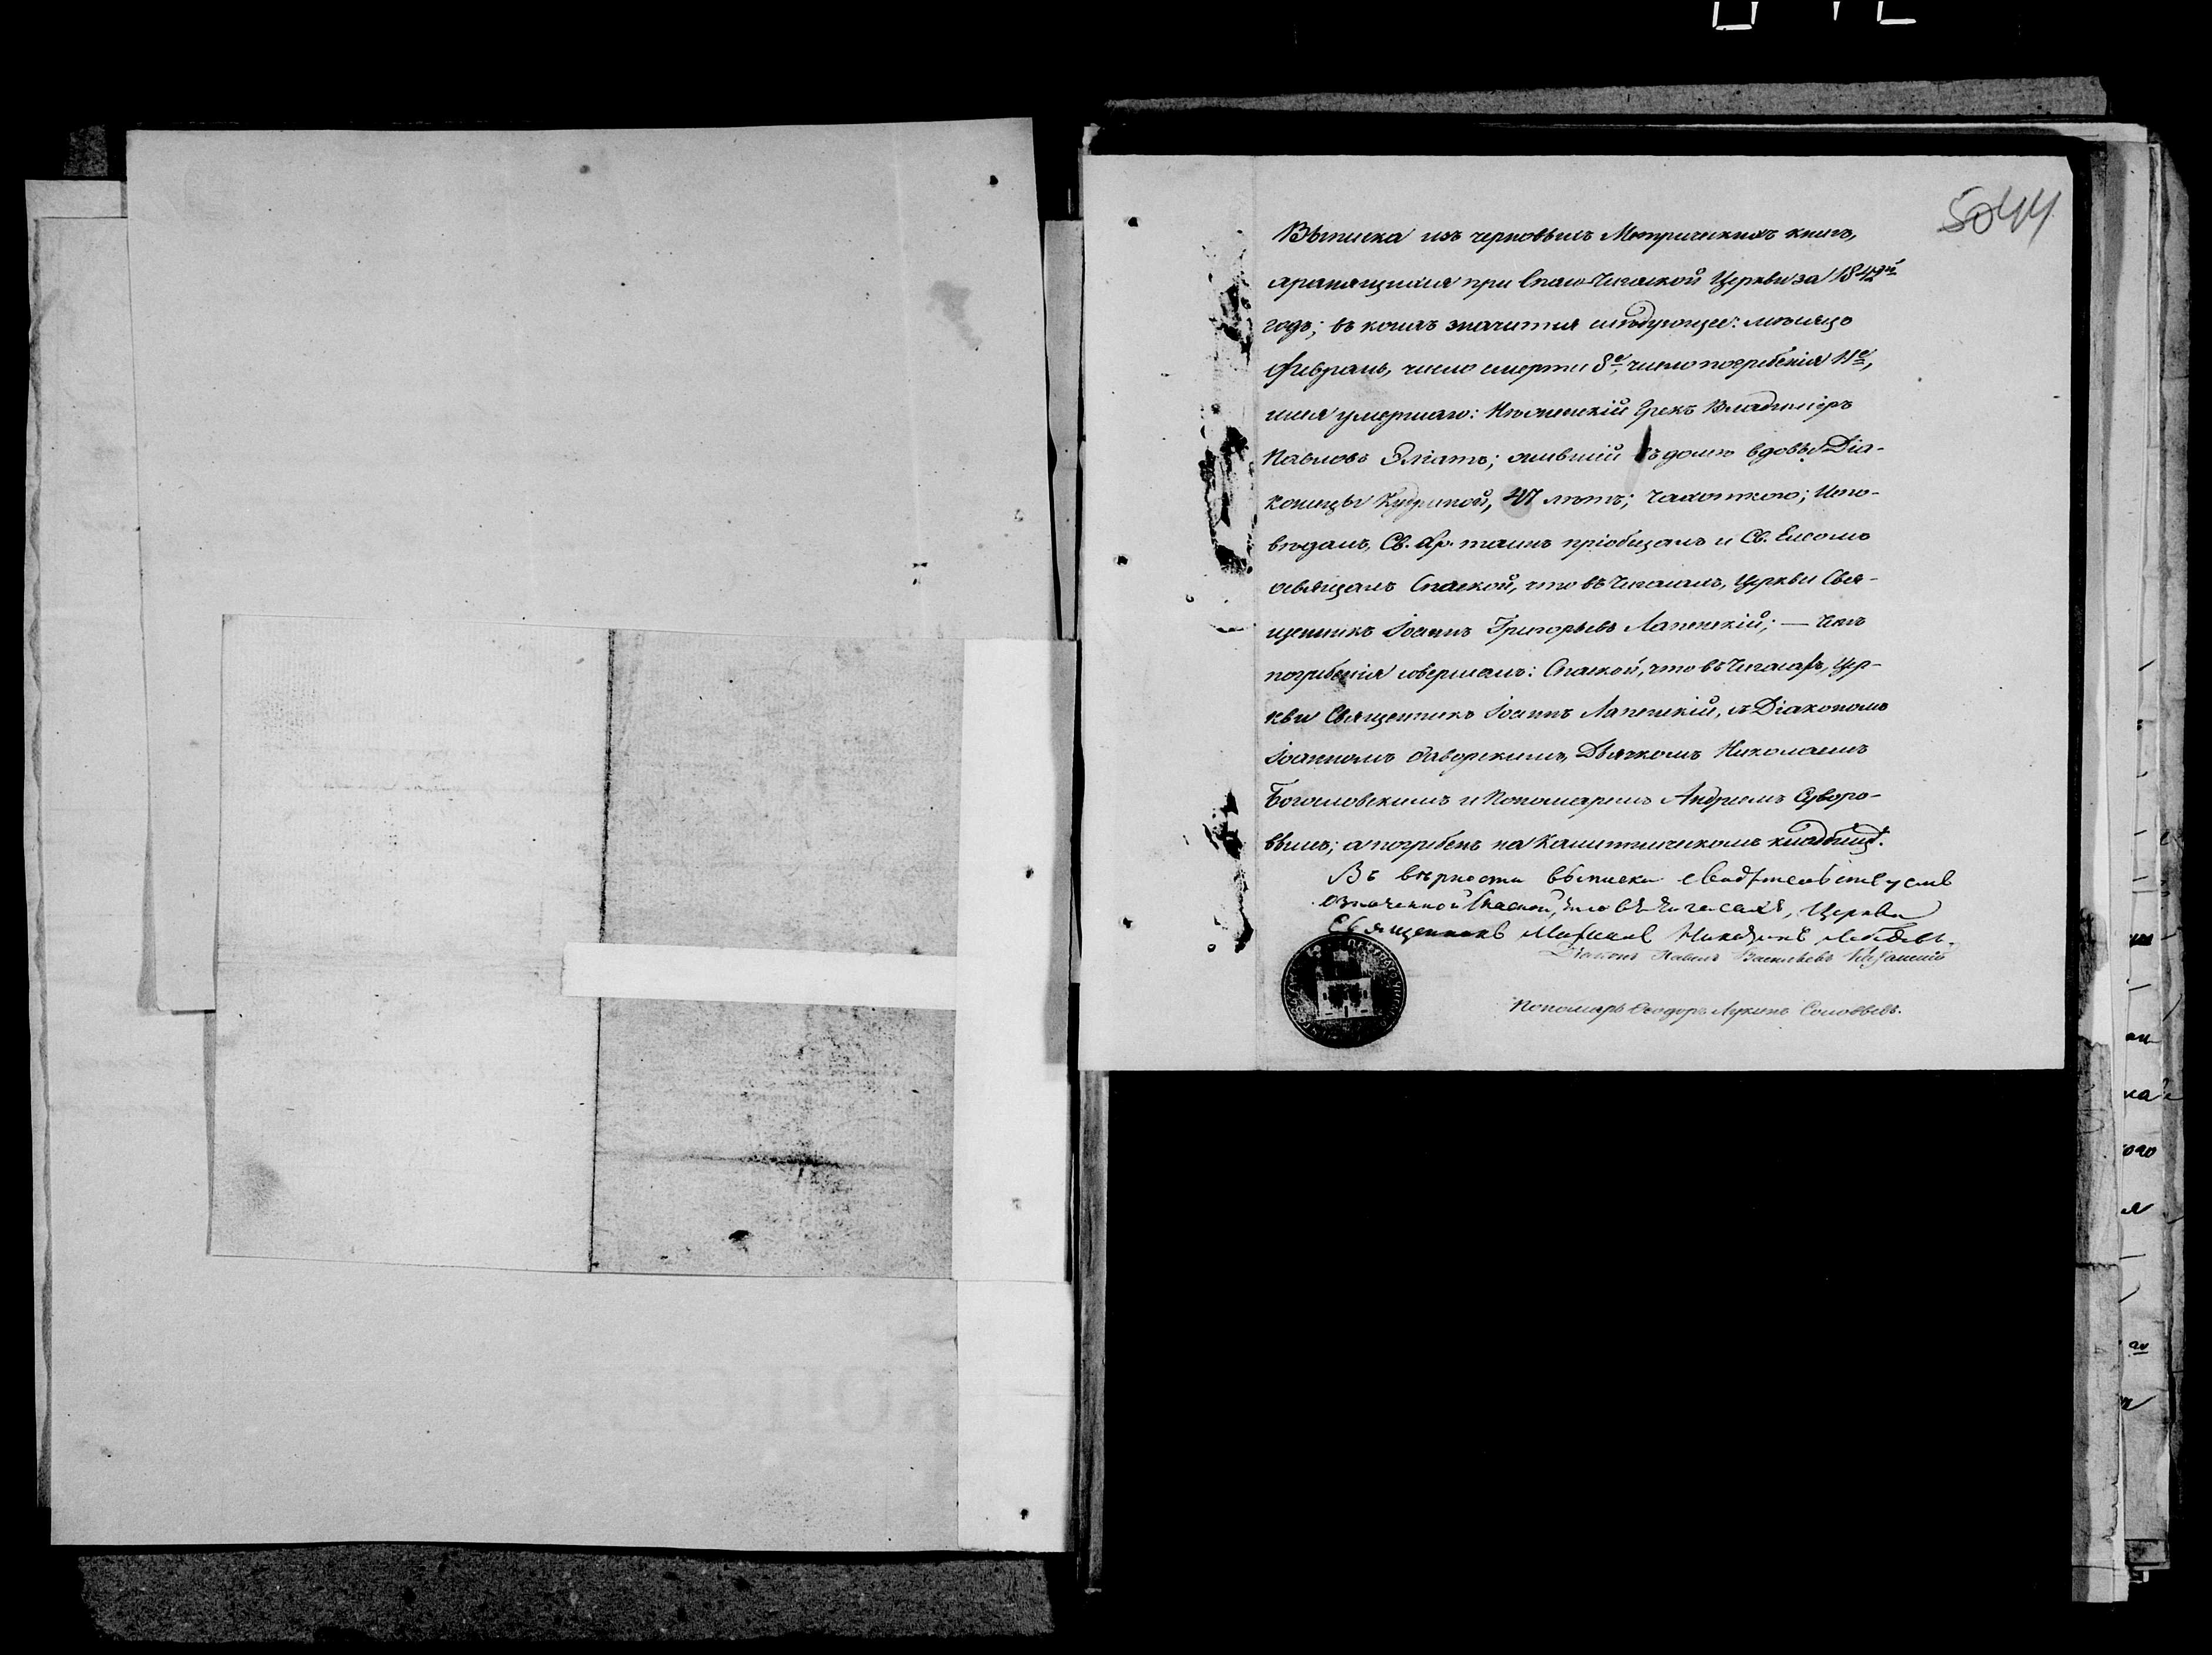 5044
Выписка изъ черновыхъ Метрическихъ книгъ,
хранящихся при Спасо-Чигаской Церкви за 1842й
годъ; въ коихъ значится слѣдующее: мѣсяцъ
Февраль, число смерти 8е, число погребенія 11е,
имя умершаго: Нѣжинскій Грекъ Владиміръ
Павловъ ; жившій въ домѣ вдовы Діа-
коницы , 47 лѣтъ; чахоткою; Испо-
вѣдалъ, Св. Хр. таинъ пріобщалъ и Св. Елеомъ
освящалъ Спаской, что въ Чигасахъ, Церкви Свя-
щенникъ Іоаннъ Григорьевъ Лапенскій; — Чинъ
погребенія совершалъ: Спаской, что въ Чигасахъ, Цер-
кви Священникъ Іоаннъ Лапенскій, съ Діакономъ
Іоанномъ Ѳаворскимъ, Дьячкомъ Николаемъ
Богословскимъ и Пономаремъ Андреемъ Суворо-
вымъ; а погребенъ на Калитниковскомъ кладбищѣ.
Въ вѣрности выписки свидѣтельствуемъ
означенной Спаской, что въ Чигасахъ, Церкви
Священникъ Михаилъ
Діаконъ Павелъ Васильевъ Казанскій
Пономарь Ѳеодоръ Лукинъ Соловьевъ.